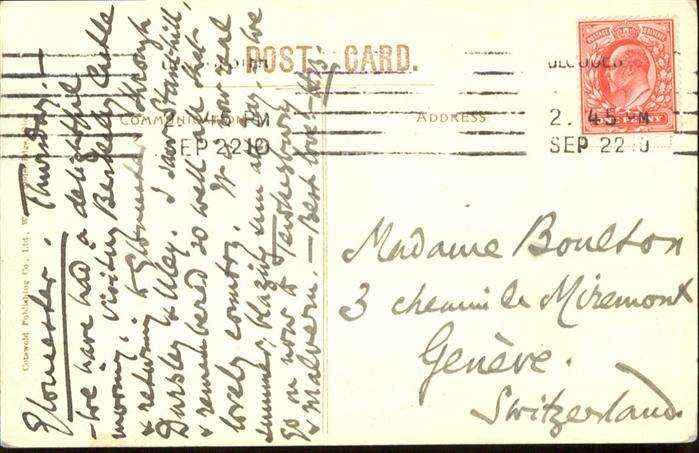 POST CARD.
COMMUNICATION
ADDRESS
GLOUCESTER
2. 45 PM
SEP 22 10
2. 45 PM
SEP 22 10
ONE PENNY
Cotswold Publishing Co., Ltd.,
Gloucester. Thursday.
We have had a delightful
morning, visiting Berkeley Castle
& returning to Gloucester through
Dursley & Uley. I saw Stanchcombe hill,
& remembered so well all that
lovely country. It is now real
summer, blazing sun all day. We
go on now to Tewkesbury
& Malvern. — Best love.
Madame Boulton
3 chemin de Miremont
Genève.
Switzerland.